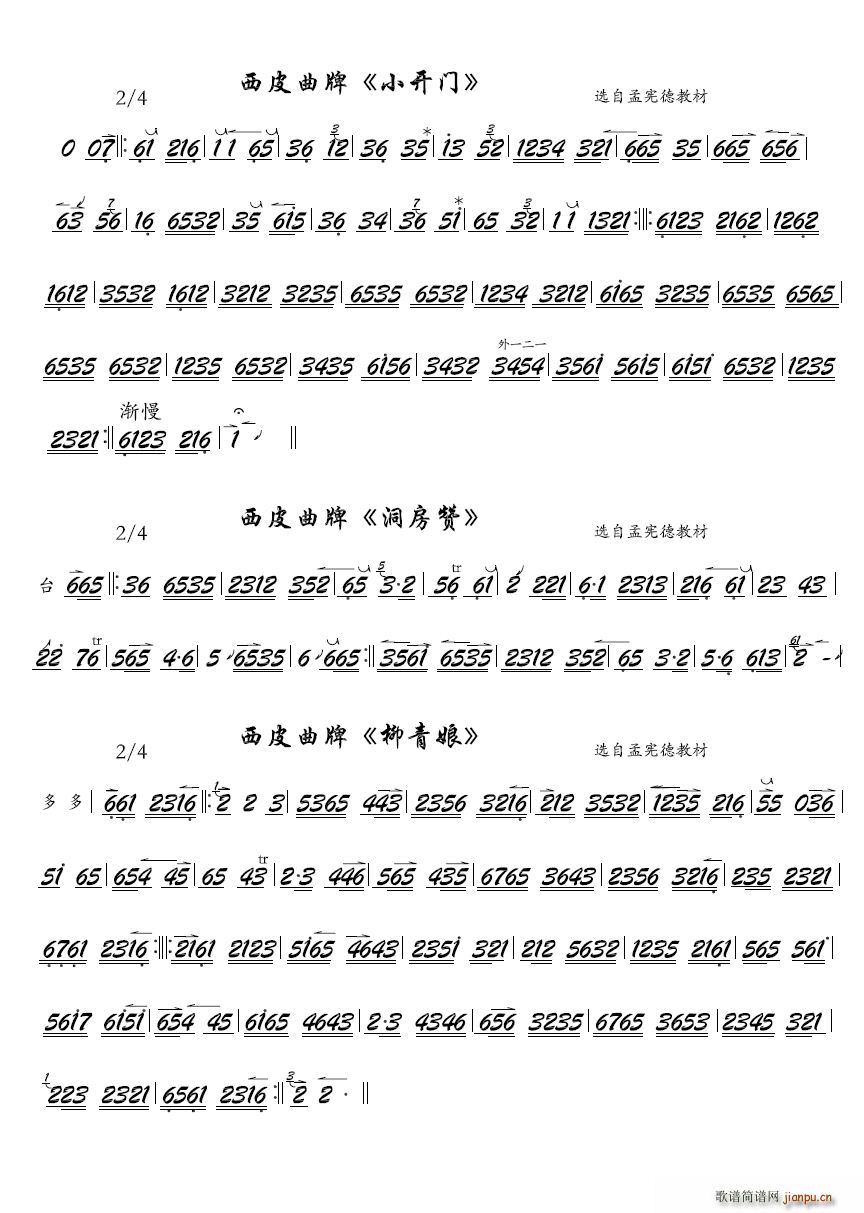 西皮曲牌《小开门》
2/4 选自孟宪德教材
0 07‖:61 216|11 65|36 12|36 35|13 52|1234 321|665 35|665 656|
63 56|16 6532|35 615|36 34|36 51|65 32|11 1321:‖:6123 2162|1262
1612|3532 1612|3212 3235|6535 6532|1234 3212|6165 3235|6535 6565|
外一二一
6535 6532|1235 6532|3435 6156|3432 3454|3561 5615|6151 6532|1235
渐慢
2321:‖6123 216|1 ‖
西皮曲牌《洞房赞》
2/4 选自孟宪德教材
台 665‖:36 6535|2312 352|65 3·2|56 61|2 221|6·1 2313|216 61|23 43|
22 76|565 4·6|5 6535|6 665:‖3561 6535|2312 352|65 3·2|5·6 613|2 -|
西皮曲牌《柳青娘》
2/4 选自孟宪德教材
多 多|661 2316‖:2 2 3|5365 443|2356 3216|212 3532|1235 216|55 036|
51 65|654 45|65 43|2·3 446|565 435|6765 3643|2356 3216|235 2321|
6761 2316:‖:2161 2123|5165 4643|2351 321|212 5632|1235 2161|565 561|
5617 6151|654 45|6165 4643|2·3 4346|656 3235|6765 3653|2345 321|
223 2321|6561 2316:‖2 2 · ‖
歌谱简谱网 jianpu.cn